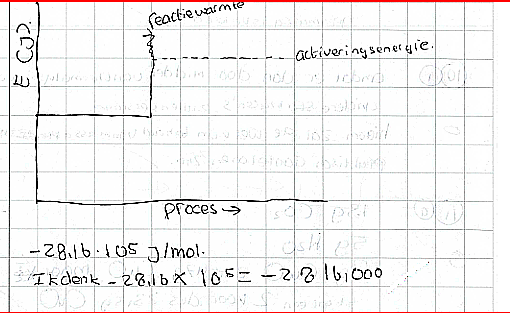 reactiewarmte
activeringsenergie.
E (J).
proces →
-28,16 · 10⁵ J/mol.
Ik denk -28,16 × 10⁵ = -2816,000